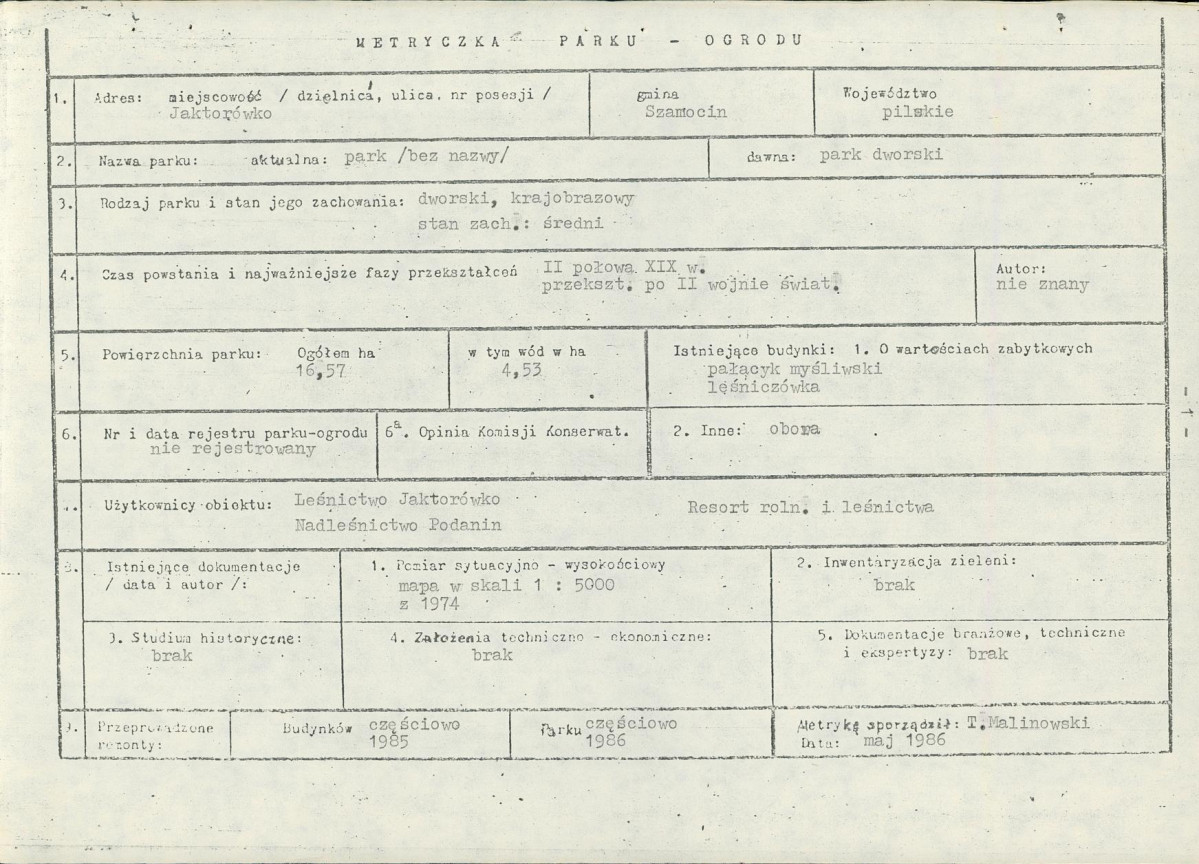 METRYCZKA PARKU - OGRODU
1. Adres: miejscowość / dzielnica, ulica. nr posesji /
Jaktorówko
gmina
Szamocin
Województwo
pilskie
2. Nazwa parku: aktualna: park /bez nazwy/
dawna: park dworski
3. Rodzaj parku i stan jego zachowania: dworski, krajobrazowy
stan zach.: średni
4. Czas powstania i najważniejsze fazy przekształceń II połowa XIX w.
przekszt. po II wojnie świat.
Autor:
nie znany
5. Powierzchnia parku: Ogółem ha
16,57
w tym wód w ha
4,53
Istniejące budynki: 1. O wartościach zabytkowych
pałacyk myśliwski
leśniczówka
6. Nr i data rejestru parku-ogrodu
nie rejestrowany
6a. Opinia Komisji Konserwat.
2. Inne: obora
Użytkownicy obiektu: Leśnictwo Jaktorówko
Nadleśnictwo Podanin
Resort roln. i leśnictwa
8. Istniejące dokumentacje
/ data i autor /:
1. Pomiar sytuacyjno - wysokościowy
mapa w skali 1 : 5000
z 1974
2. Inwentaryzacja zieleni:
brak
3. Studium historyczne:
brak
4. Założenia techniczno - ekonomiczne:
brak
5. Dokumentacje branżowe, techniczne
i ekspertyzy: brak
9. Przeprowadzone
remonty:
Budynków częściowo
1985
Parku częściowo
1986
Metrykę sporządził: T.Malinowski
Data: maj 1986
- 1 -